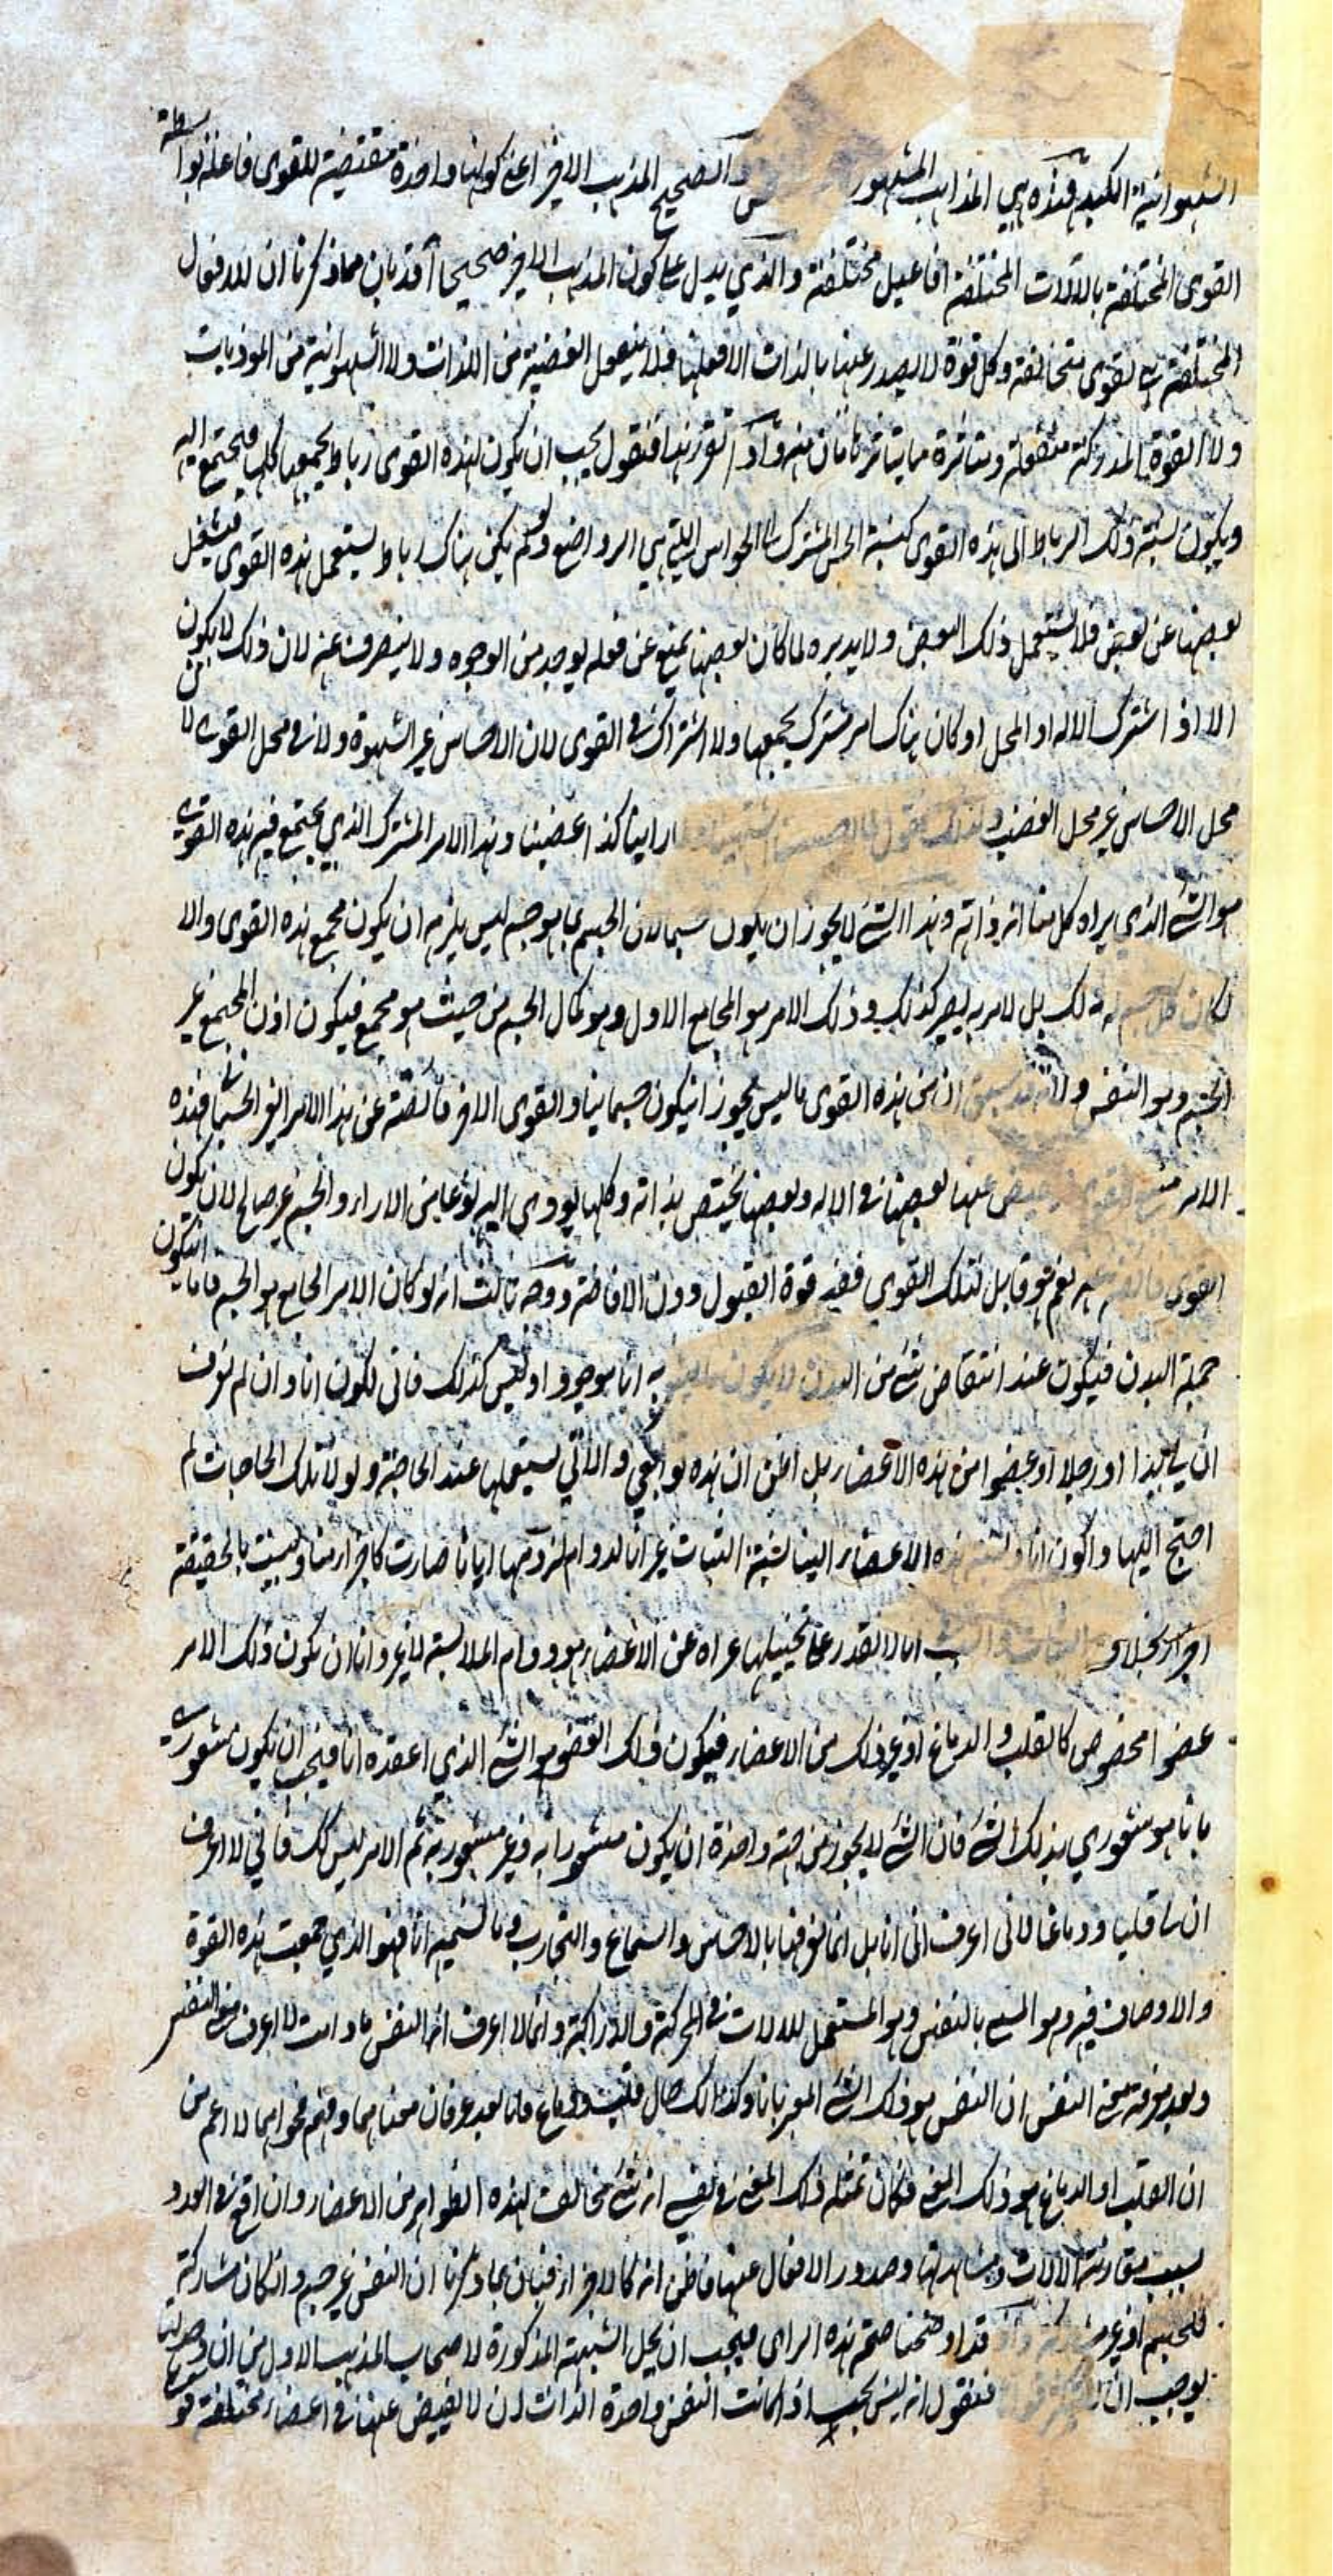 الشهوانية الكبد فهذه هي المذاهب المشهور والصحيح المذهب الاخر اعني كونها واحدة مقتضية للقوى فاعلة بواسطة
القوى المختلفة بالالات المختلفة افاعيل مختلفة والذي يدل على كون المذهب الاخر صحيحا قد بان مما ذكرنا ان للافعال
المختلفة لقوى متخالفة وكل قوة لا يصدر عنها بالذات الا فعلها فلا ينفعل الغضبية من اللذات ولا الشهوانية من الموذيات
ولا القوة المدركة منفعلة ومتاثرة مما يتاثر تقرر هذا فنقول يجب ان يكون لهذه القوى رباط يجمعها كلها فيجتمع اليه
ويكون نسبة ذلك الرباط الى هذه القوى كنسبة الحس المشترك الى الحواس التي هي الرواضع ولو لم يكن هناك رباط يستعمل هذه القوى فيشتغل
بعضها عن بعض فلا يستعمل ذلك البعض ولا يدبره لما كان بعضها يمنع عن فعله بوجه من الوجوه ولا ينصرف عنه لان ذلك لا يكون
الا اذا اشترك الاله او المحل او كان هناك امر مشترك يجمعها ولا اشتراك في القوى لان الاحساس غير الشهوة ولا في محل القوى لان
محل الاحساس غير محل الغضب ولذلك نقول لما احسسنا اشتهينا راينا كذا غضبنا وهذا الامر المشترك الذي يجتمع فيه هذه القوى
هو الشئ الذي يراه كل منا انه ذاته وهذا الشئ لا يجوز ان يكون جسما لان الجسم بما هو جسم ليس يلزمه ان يكون مجمع هذه القوى والا
لكان كل جسم له ذلك بل لامر به يصير كذلك وذلك الامر هو الجامع الاول وهو كمال الجسم من حيث هو مجمع فيكون اذن المجمع غير
الجسم وهو النفس ان من هذه القوى ما ليس يجوز ان يكون جسمانيا والقوى الاخر فائضة عن هذا الامر الغير الجسماني فهذه
الامر منبع القوى يفيض عنها بعضها في الاله وبعضها يختص بذاته وكلها يودي اليه نوعا من الاراء والجسم غير صالح لان يكون
القوى نعم هو قابل لتلك القوى ففيه قوة القبول دون الافاضة ووجه ثالث انه لو كان الامر الجامع هو الجسم فاما ان يكون
جملة البدن فيكون عند انتقاص شئ من البدن لا يكون به انا موجودا وليس كذلك فاني اكون انا وان لم نعرف
ان لي يدا او رجلا او عضوا من هذه الاعضاء بل اظن ان هذه توابعي والاتي يستعملها عند الحاجة ولولا تلك الحاجات لم
احتج اليها واكون انا نسبة هذه الاعضاء الينا نسبة الثياب غير انا لدوام لزومها ايانا صارت كاجزاء منا وليست بالحقيقة
اجزاء بخلاف الثياب انا لا نقدر على تخيلها عراه عن الاعضاء هو دوام الملابسة لا غير واما ان يكون ذلك الامر
عضوا مخصوص كالقلب والدماغ او غير ذلك من الاعضاء فيكون ذلك العضو هو الشئ الذي اعقده انا فيجب ان يكون شعوري
بانا هو شعوري بذلك الشئ فان الشئ لا يجوز من جهة واحدة ان يكون مشعورا به وغير مشعور به ثم الامر ليس كك فاني لا اعرف
ان لي قلبا ودماغا لاني اعرف اني انا بل انما نعرفها بالاحساس والسماع والتجارب وما نسميه انا فهو الذي جمعت هذه القوة
والاوصاف فيه وهو المسمى بالنفس وهو المستعمل للالات في المحركة والدراكة وانما لا اعرف انه النفس ما دامت لا اعرف معنى النفس
وبعد معرفة معنى النفس ان النفس هو ذلك الشئ المعبر بانا وكذلك حال قلب ودماغ فانا بعد عرفان معناهما وفهم فحواهما لا اعلم من
ان القلب او الدماغ هو ذلك المعنى فكان تمثله ذلك المعنى في نفسي انه شئ مخالف لهذه الظواهر من الاعضاء وان اقع في الورد
بسبب مقارنة الالات ومشاهدتها وصدور الافعال عنها فاظن انه كالاجزاء فبان بما ذكرنا ان النفس غير جسم وان كان مشاركة
للجسم او غير قد اوضحنا صحة هذه الراى فيجب ان يحل الشبهة المذكورة لاصحاب المذهب الاول من ان
يوجب ان فنقول انه ليس يجب اذا كانت النفس واحدة الذات ان لا يفيض عنها في اعضاء مختلفة قوى